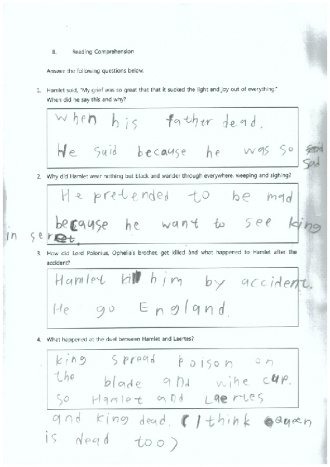 B. Reading Comprehension
Answer the following questions below.
1. Hamlet said, "My grief was so great that that it sucked the light and joy out of everything"
When did he say this and why?
when his father dead.
He said because he was so sad
sad
2. Why did Hamlet wear nothing but black and wander through everywhere, weeping and sighing?
He pretended to be mad
because he want to see king
in secret.
3. How did Lord Polonius, Ophelia's brother, get killed and what happened to Hamlet after the
accident?
Hamlet kill him by accident.
He go England.
4. What happened at the duel between Hamlet and Laertes?
king spread poison on
the blade and wine cup.
so Hamlet and Laertes
and king dead. (I think queen
is dead too)